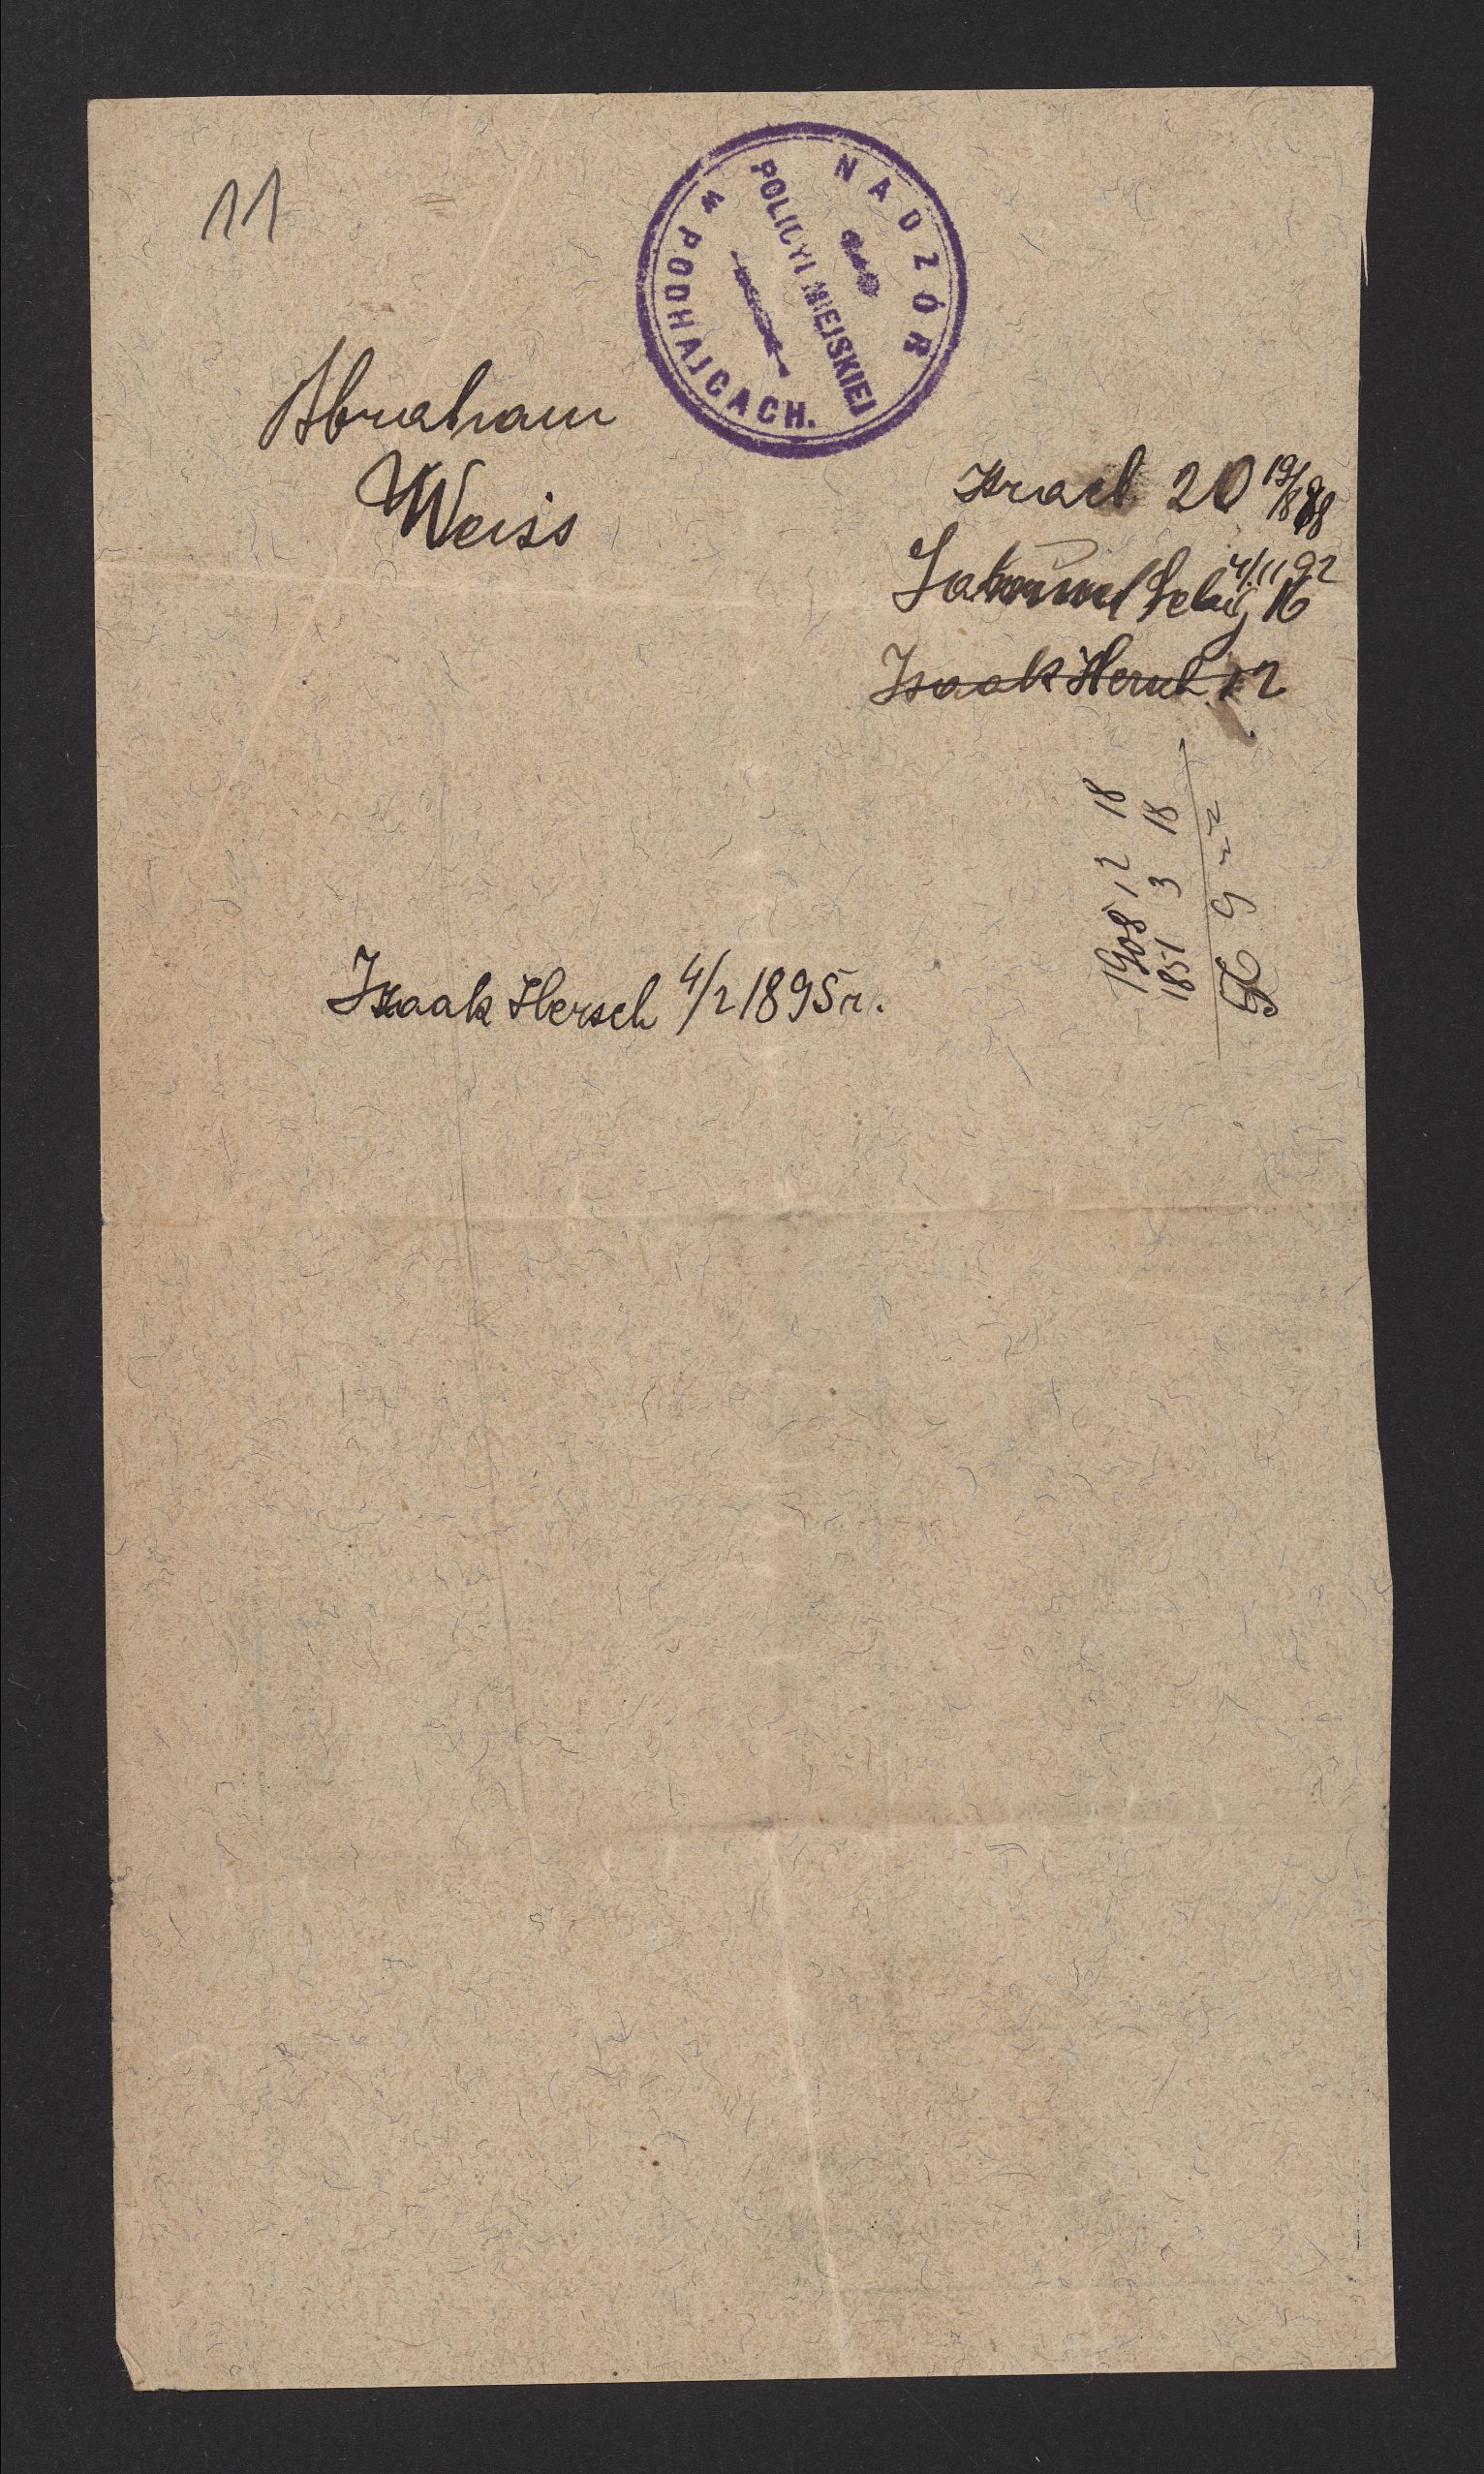 11
NADZÓR
POLICYI MIEJSKIEJ
W PODHAJCACH.
Abraham
Weiss
Israel 20 19/8 88
4/11 92
16
Isaak Hersch 12
1908 12 18
1851 3 18
9
Isaak Hersch 4/2 1895 r.